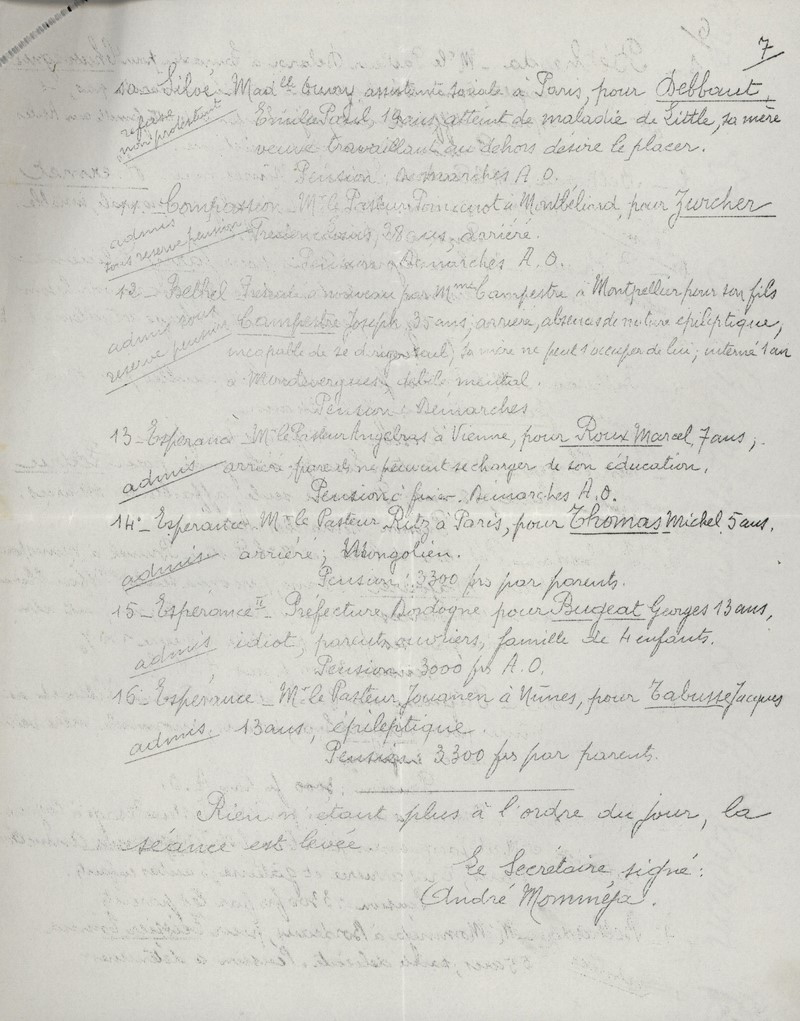 7
10 - Siloé - Mad.elle Dunoy, assistante sociale à Paris, pour Debbaut,
refusé
non protestant
Emile Paul, 19 ans, atteint de maladie de Little, sa mère
veuve travaillant au dehors désire le placer.
Pension : Démarches A.O.
11 - Compassion - Mr le Pasteur à Montbéliard, pour Zurcher
admis
sous réserve pension
38 ans, arriéré.
Pension : Démarches A.O.
12 - Béthel à nouveau par Mme Campestre à Montpellier pour son fils
admis sous
réserve pension
Campestre Joseph, 35 ans, arriéré, absences de nature épileptique,
incapable de se diriger seul ; sa mère ne peut s'occuper de lui ; interné 1 an
à Montdevergues ; débile mental.
Pension : Démarches
13 - Espérance - Mr le Pasteur Angebras à Vienne, pour Roux Marcel, 7 ans ;
admis
arriéré parents ne peuvent se charger de son éducation.
Pension à fixer. Démarches A.O.
14 - Espérance Mr le Pasteur Rutz à Paris, pour Thomas Michel 5 ans,
admis
arriéré ; Mongolien.
Pension : 3300 frs par parents.
15 - Espérance II - Préfecture Dordogne pour Bugeat Georges 13 ans,
admis
idiot, parents ouvriers, famille de 4 enfants.
Pension 3000 frs A.O.
16 - Espérance - Mr le Pasteur Jouanen à Nîmes, pour Tabusse Jacques
admis
13 ans, épileptique.
Pension : 3300 frs par parents.
Rien n'étant plus à l'ordre du jour, la
séance est levée.
Le Secrétaire signé :
(André Momméja.